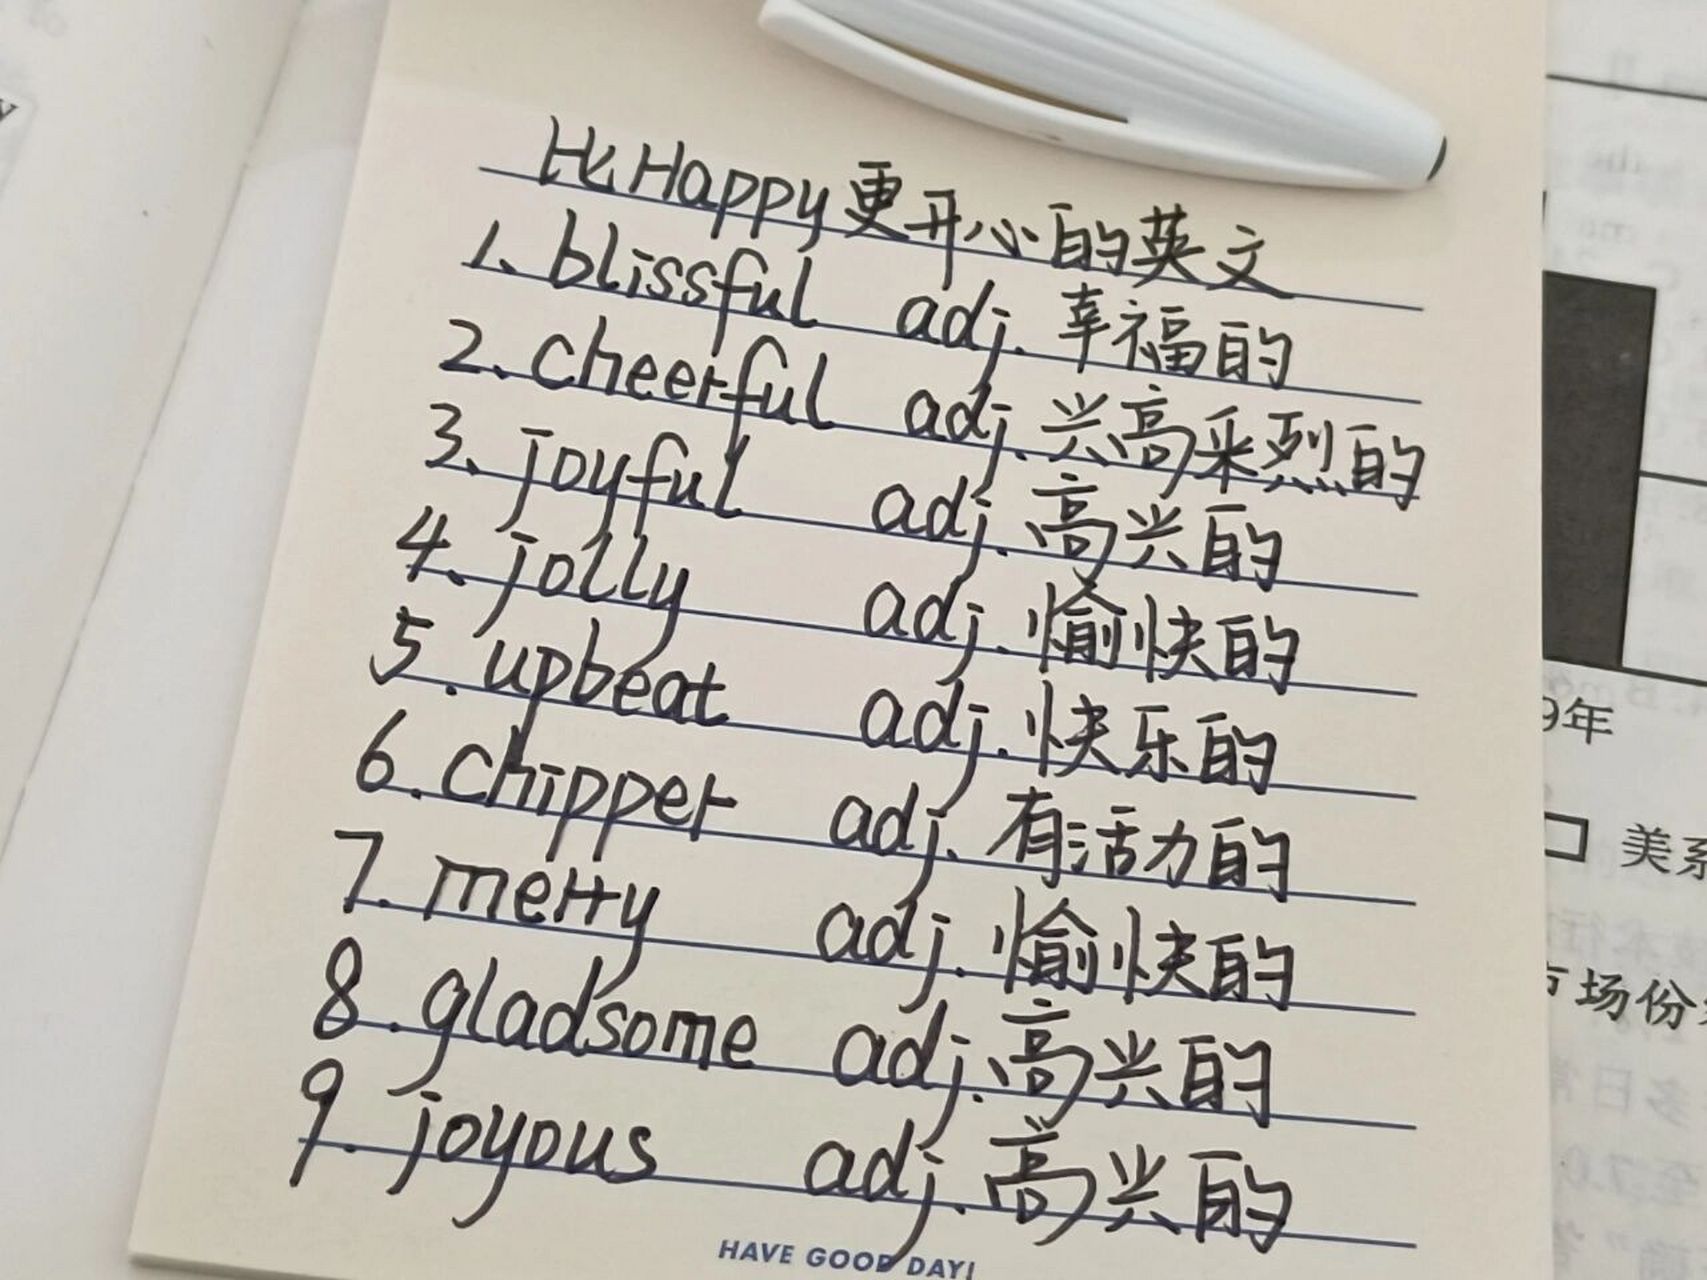 比Happy更开心的英文
1、blissful adj. 幸福的
2、cheerful adj. 兴高采烈的
3、joyful adj. 高兴的
4、jolly adj. 愉快的
5. upbeat adj. 快乐的
6. chipper adj. 有活力的
7. merry adj. 愉快的
8. gladsome adj. 高兴的
9. joyous adj. 高兴的
HAVE GOOD DAY!
9年
美系
市场份